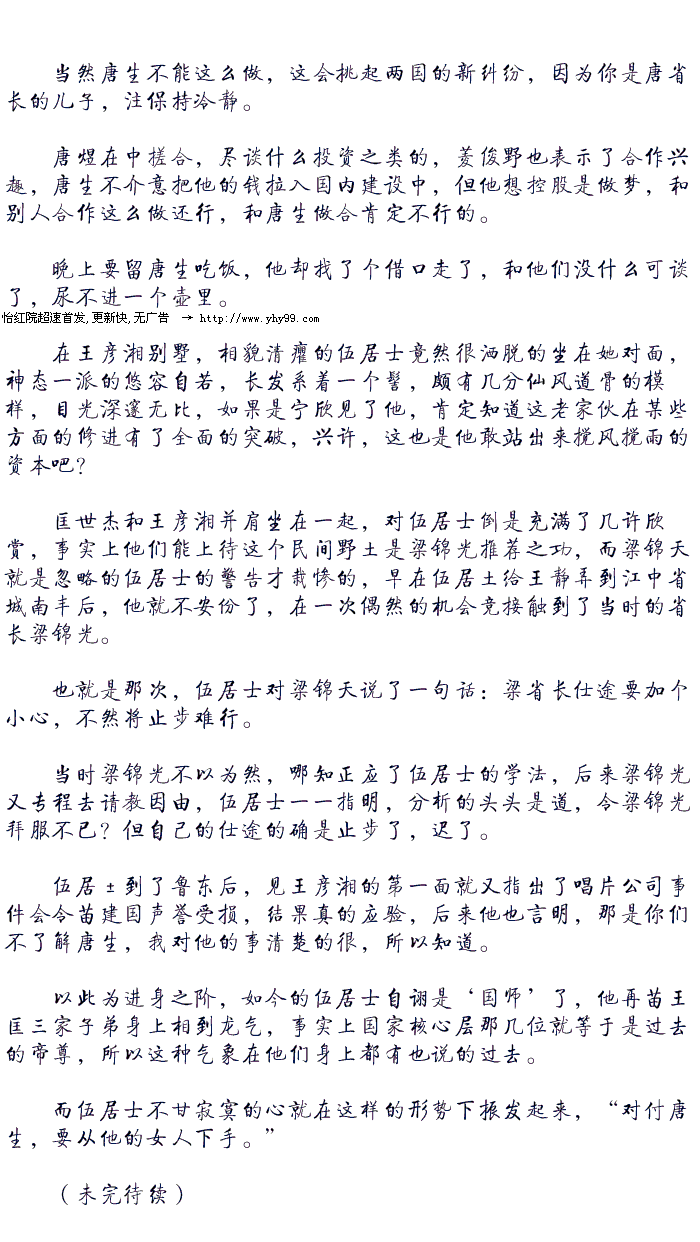 当然唐生不能这么做，这会挑起两国的新纠纷，因为你是唐省
长的儿子，注保持冷静。
唐煜在中搓合，尽谈什么投资之类的，姜俊野也表示了合作兴
趣，唐生不介意把他的钱拉入国内建设中，但他想控股是做梦，和
别人合作这么做还行，和唐生做合肯定不行的。
晚上要留唐生吃饭，他却找了个借口走了，和他们没什么可谈
了，尿不进一个壶里。
怡红院超速首发,更新快,无广告 → http://www.yhy99.com
在王彦湘别墅，相貌清癯的伍居士竟然很洒脱的坐在她对面，
神态一派的悠容自若，长发系着一个髻，颇有几分仙风道骨的模
样，目光深邃无比，如果是宁欣见了他，肯定知道这老家伙在某些
方面的修进有了全面的突破，兴许，这也是他敢站出来搅风搅雨的
资本吧？
匡世杰和王彦湘并肩坐在一起，对伍居士倒是充满了几许欣
赏，事实上他们能上待这个民间野士是梁锦光推荐之功，而梁锦天
就是忽略的伍居士的警告才栽惨的，早在伍居士给王静弄到江中省
城南丰后，他就不安份了，在一次偶然的机会竞接触到了当时的省
长梁锦光。
也就是那次，伍居士对梁锦天说了一句话：梁省长仕途要加个
小心，不然将止步难行。
当时梁锦光不以为然，哪知正应了伍居士的学法，后来梁锦光
又专程去请教因由，伍居士一一指明，分析的头头是道，令梁锦光
拜服不已？但自己的仕途的确是止步了，迟了。
伍居±到了鲁东后，见王彦湘的第一面就又指出了唱片公司事
件会令苗建国声誉受损，结果真的应验，后来他也言明，那是你们
不了解唐生，我对他的事清楚的很，所以知道。
以此为进身之阶，如今的伍居士自诩是‘国师’了，他再苗王
匡三家子弟身上相到龙气，事实上国家核心层那几位就等于是过去
的帝尊，所以这种气象在他们身上都有也说的过去。
而伍居士不甘寂寞的心就在这样的形势下振发起来，“对付唐
生，要从他的女人下手。”
（未完待续）